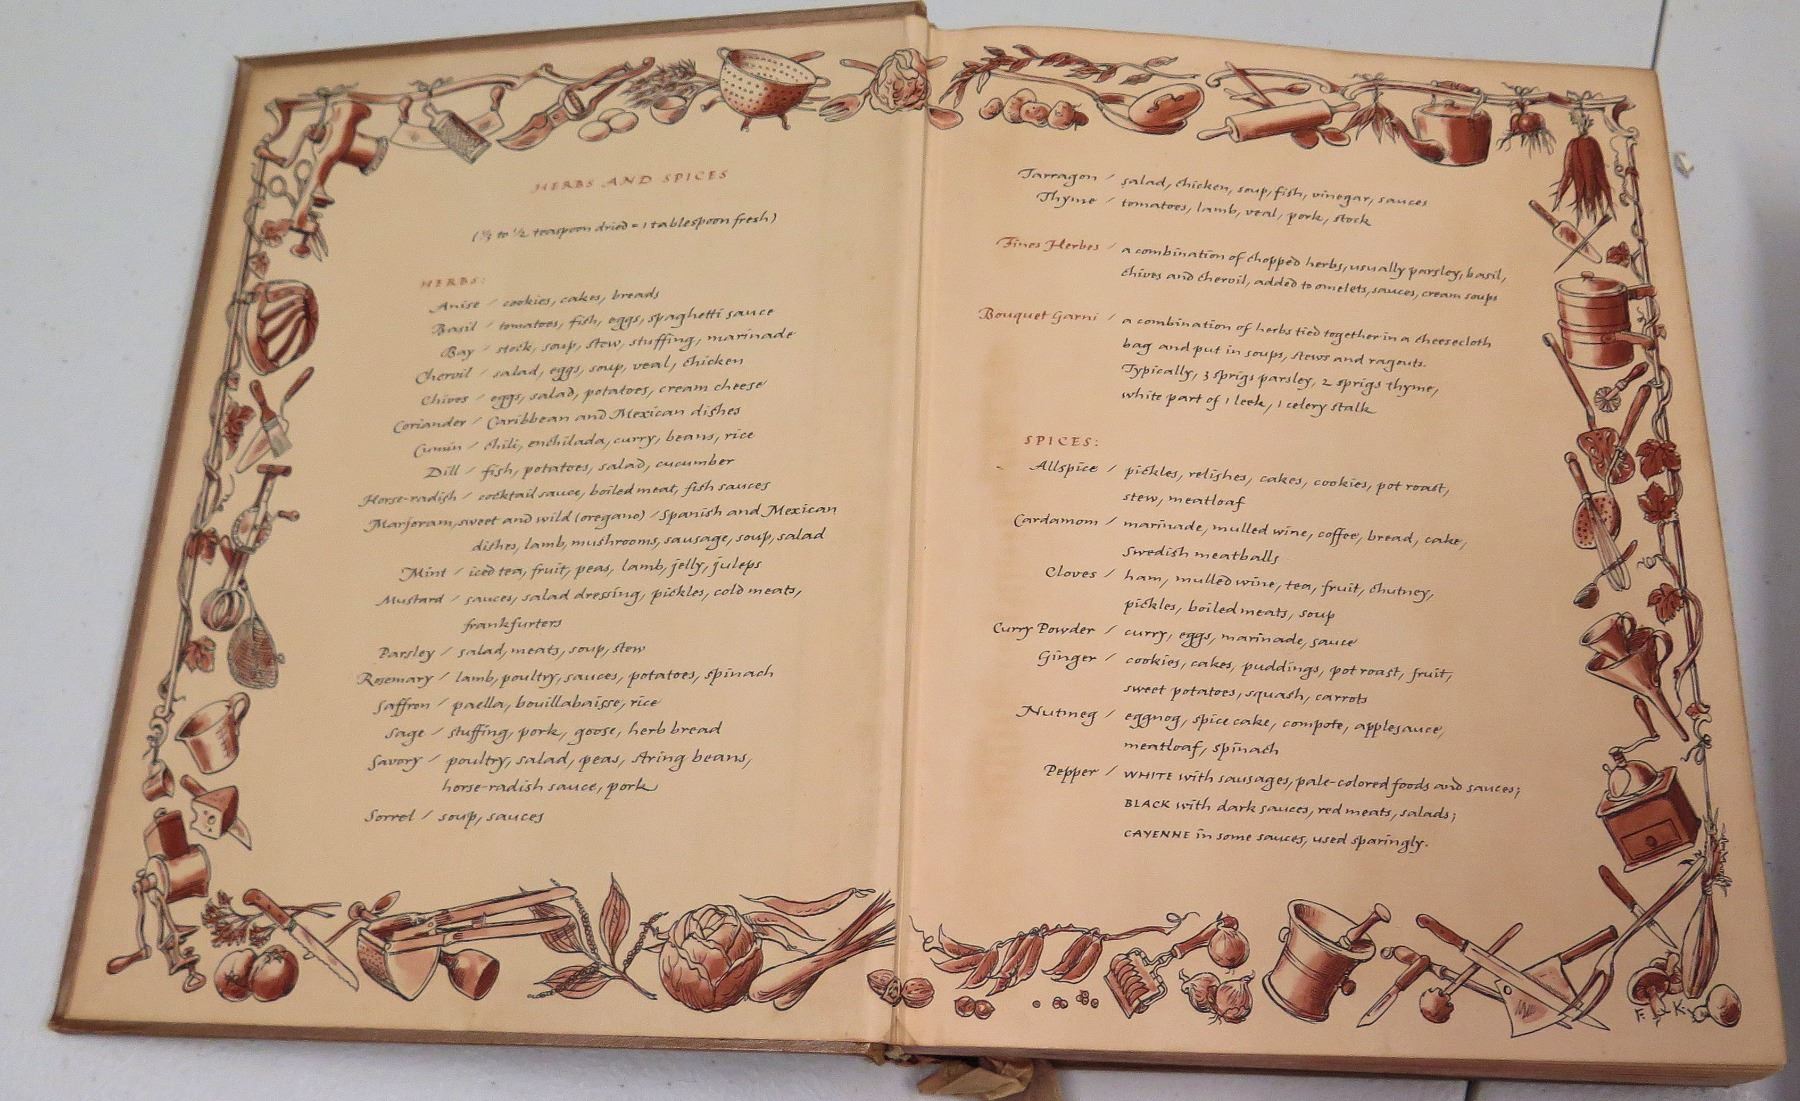 HERBS AND SPICES
(⅓ to ½ teaspoon dried = 1 tablespoon fresh)
HERBS:
Anise / cookies, cakes, breads
Basil / tomatoes, fish, eggs, spaghetti sauce
Bay / stock, soup, stew, stuffing, marinade
Chervil / salad, eggs, soup, veal, chicken
Chives / eggs, salad, potatoes, cream cheese
Coriander / Caribbean and Mexican dishes
Cumin / chili, enchilada, curry, beans, rice
Dill / fish, potatoes, salad, cucumber
Horse-radish / cocktail sauce, boiled meat, fish sauces
Marjoram, sweet and wild (oregano) / Spanish and Mexican
dishes, lamb, mushrooms, sausage, soup, salad
Mint / iced tea, fruit, peas, lamb, jelly, juleps
Mustard / sauces, salad dressing, pickles, cold meats,
frankfurters
Parsley / salad, meats, soup, stew
Rosemary / lamb, poultry, sauces, potatoes, spinach
Saffron / paella, bouillabaisse, rice
Sage / stuffing, pork, goose, herb bread
Savory / poultry, salad, peas, string beans,
horse-radish sauce, pork
Sorrel / soup, sauces
Tarragon / salad, chicken, soup, fish, vinegar, sauces
Thyme / tomatoes, lamb, veal, pork, stock
Fines Herbes / a combination of chopped herbs, usually parsley, basil,
chives and chervil, added to omelets, sauces, cream soups
Bouquet Garni / a combination of herbs tied together in a cheesecloth
bag and put in soups, stews and ragouts.
Typically, 3 sprigs parsley, 2 sprigs thyme,
white part of 1 leek, 1 celery stalk
SPICES:
Allspice / pickles, relishes, cakes, cookies, pot roast,
stew, meatloaf
Cardamom / marinade, mulled wine, coffee, bread, cake,
Swedish meatballs
Cloves / ham, mulled wine, tea, fruit, chutney,
pickles, boiled meats, soup
Curry Powder / curry, eggs, marinade, sauce
Ginger / cookies, cakes, puddings, pot roast, fruit,
sweet potatoes, squash, carrots
Nutmeg / eggnog, spice cake, compote, applesauce,
meatloaf, spinach
Pepper / WHITE with sausages, pale-colored foods and sauces;
BLACK with dark sauces, red meats, salads;
CAYENNE in some sauces, used sparingly.
F. K.